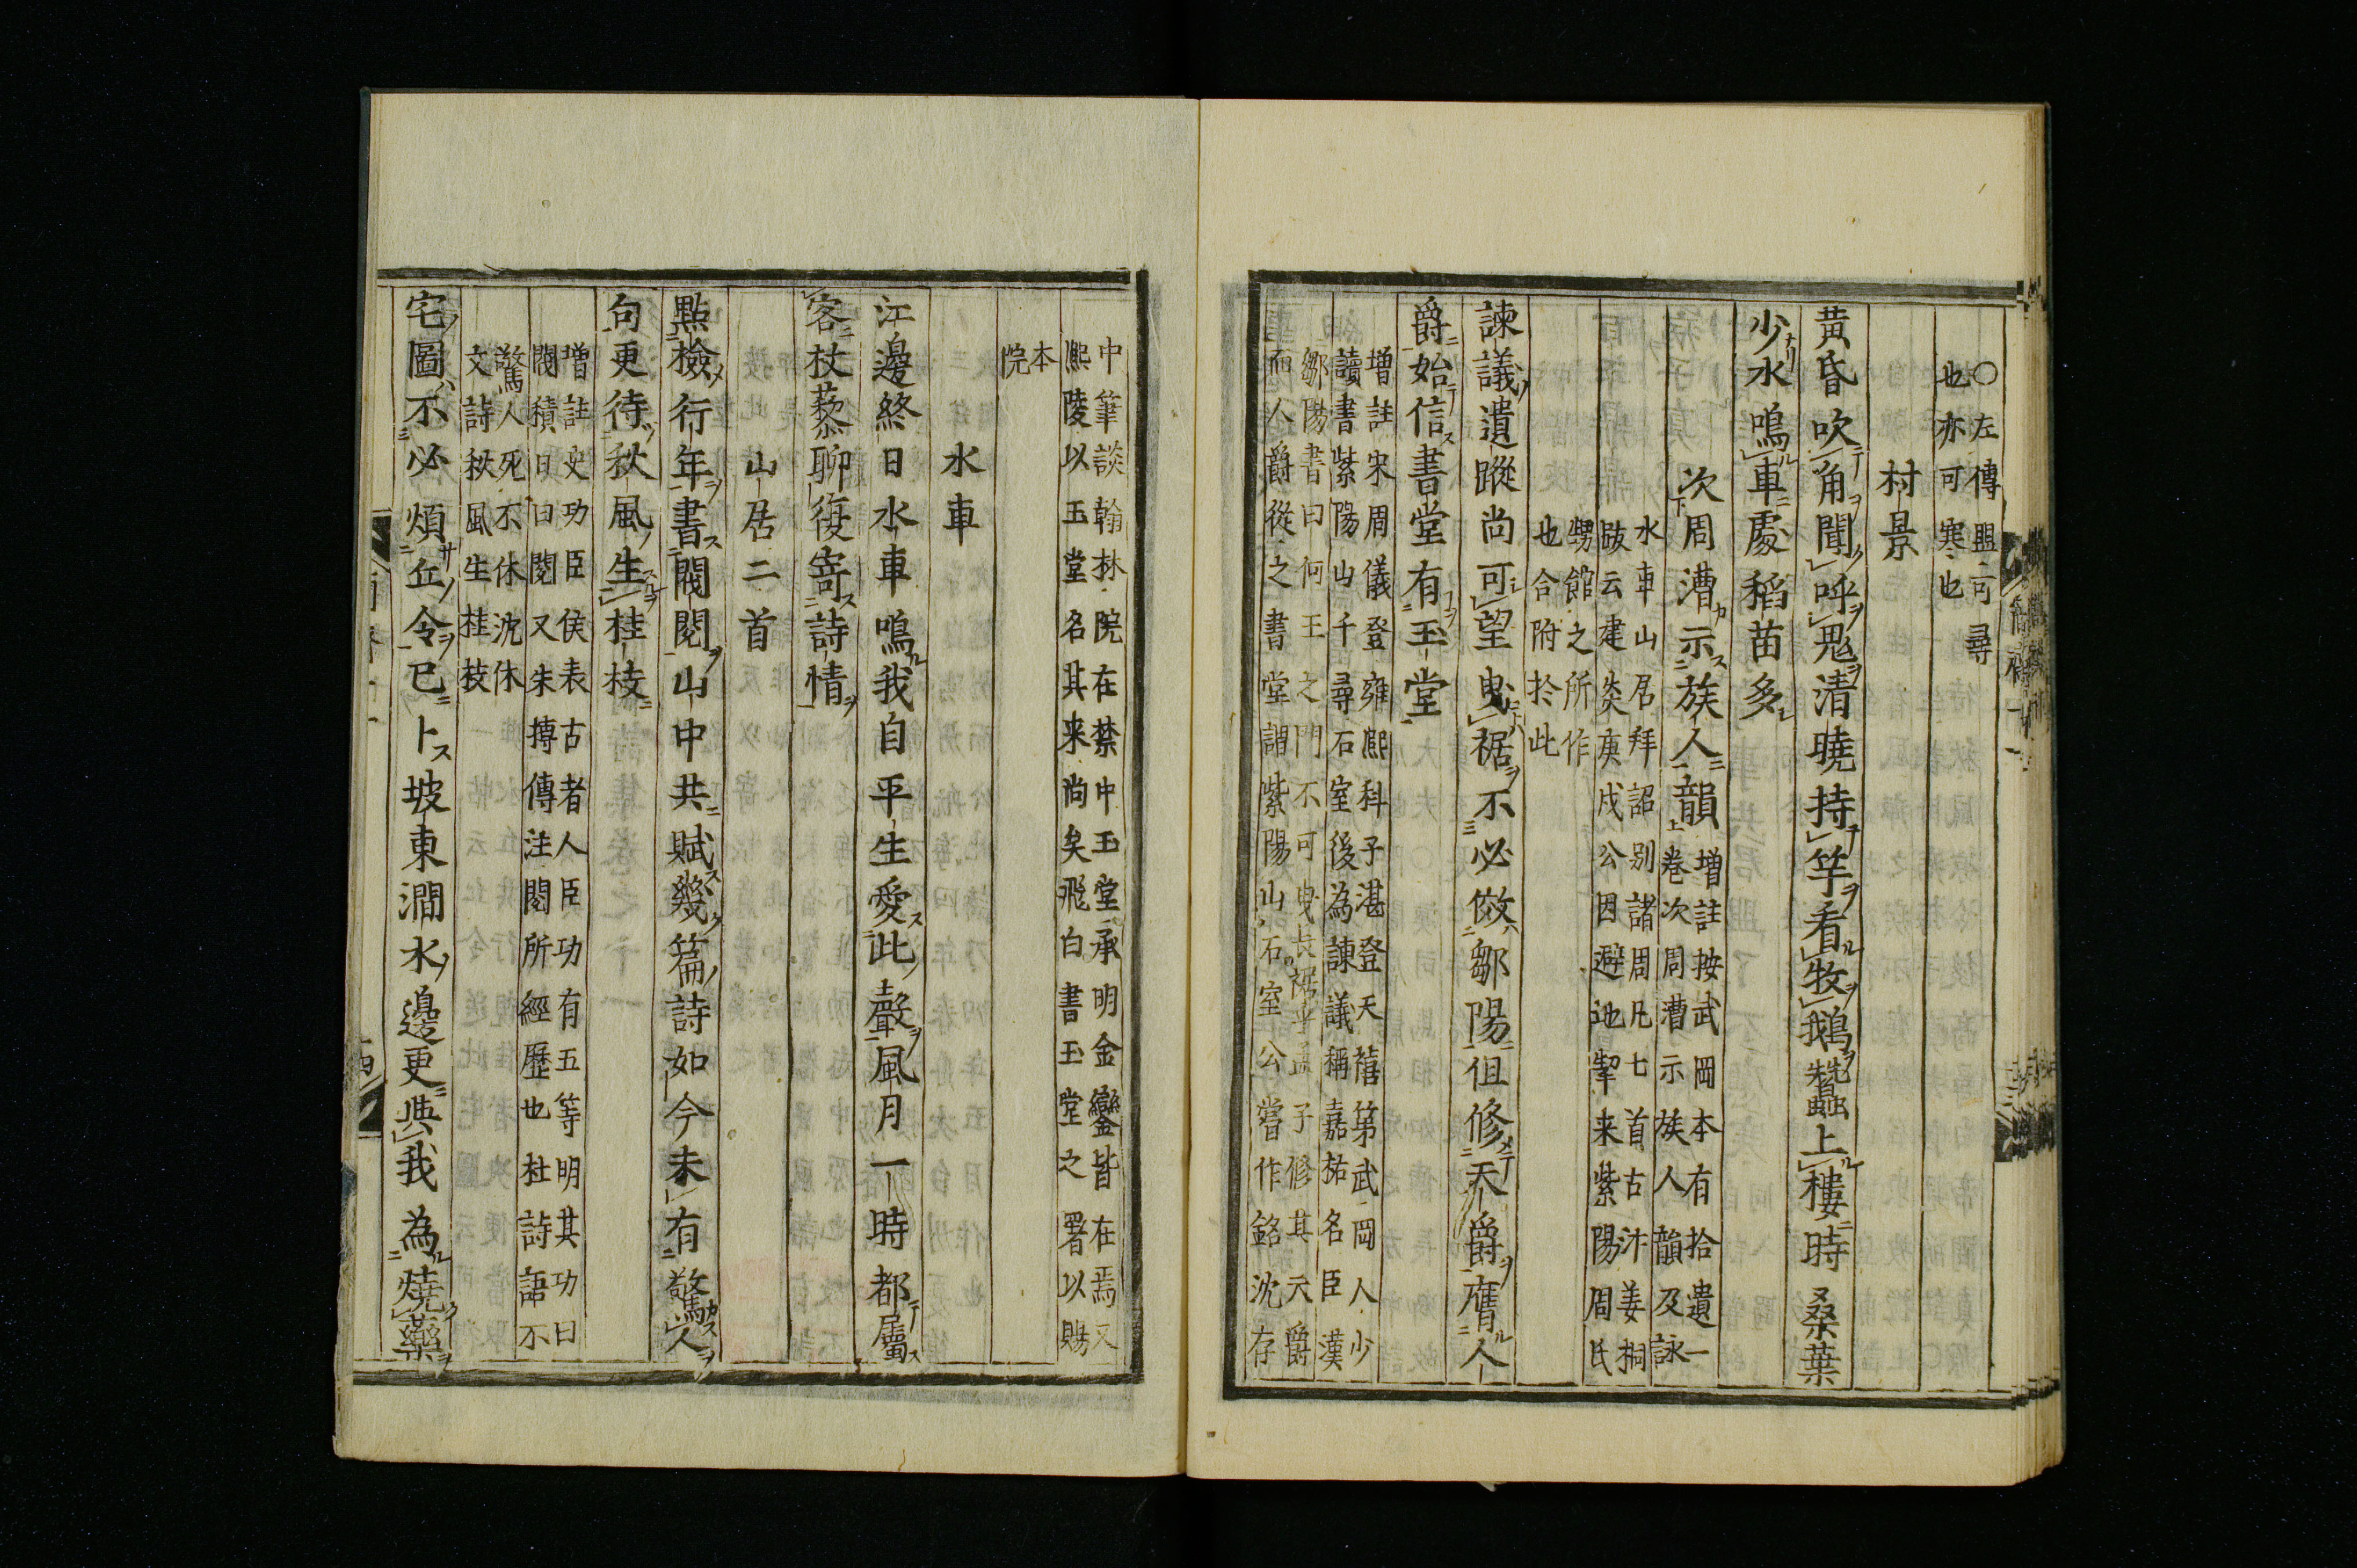 ○左傳盟可尋
也亦可寒也
村景
黃昏吹角聞呼鬼清曉持竿看牧鵝蠶上樓時桑葉
少水鳴車處稻苗多
次周漕示族人韻
增註按武岡本有拾遺一
卷次周漕示族人韻及詠
水車山居拜詔別諸周凡七首古汴姜桐
跋云建炎庚戌公因避地挈来紫陽周氏
甥館之所作
也合附於此
諫議遺蹤尚可望曳裾不必傚鄒陽但修天爵膺人
爵始信書堂有玉堂
增註宋周儀登雍熙科子湛登天禧第武岡人少
讀書紫陽山千尋石室後為諫議稱嘉祐名臣漢
鄒陽書曰何王之門不可曳長裾乎孟子修其天爵
而人爵從之書堂謂紫陽山石室公嘗作銘沈存
中筆談翰林院在禁中玉堂承明金鑾皆在焉又
熙陵以玉堂名其来尚矣飛白書玉堂之署以賜
本
院
水車
江邊終日水車鳴我自平生愛此聲風月一時都屬
客杖藜聊復寄詩情
山居二首
點檢行年書閥閱山中共賦幾篇詩如今未有驚人
句更待秋風生桂枝
增註史功臣侯表古者人臣功有五等明其功曰
閥積日曰閱又朱博傳注閱所經歷也杜詩語不
驚人死不休沈休
文詩秋風生桂枝
宅圖不必煩丘令已卜坡東澗水邊更與我為燒藥